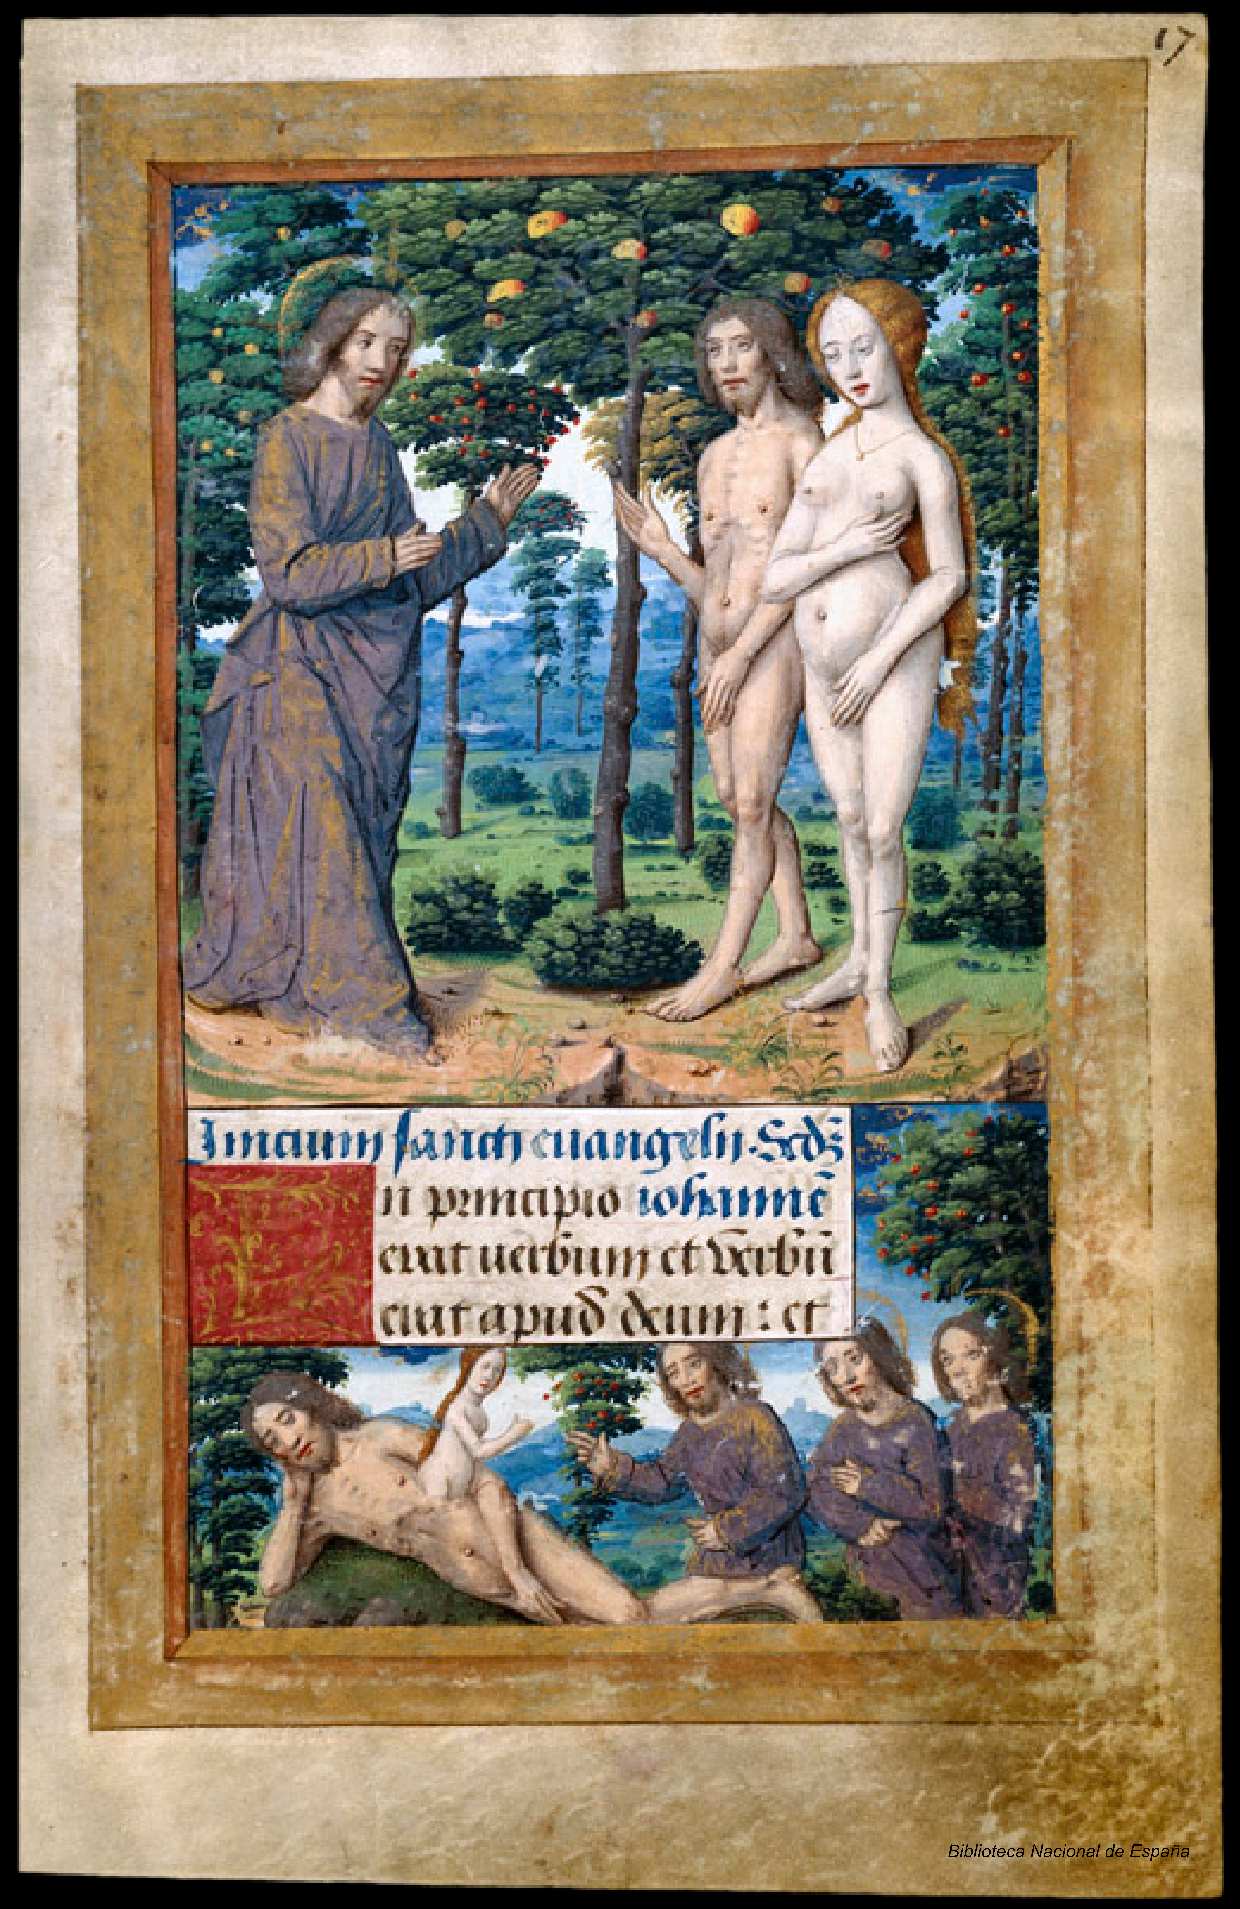 17
Inicium sancti euangelii. Scdȝ
In principio iohannē
erat uerbum et verbū
erat apud deum : et
Biblioteca Nacional de España